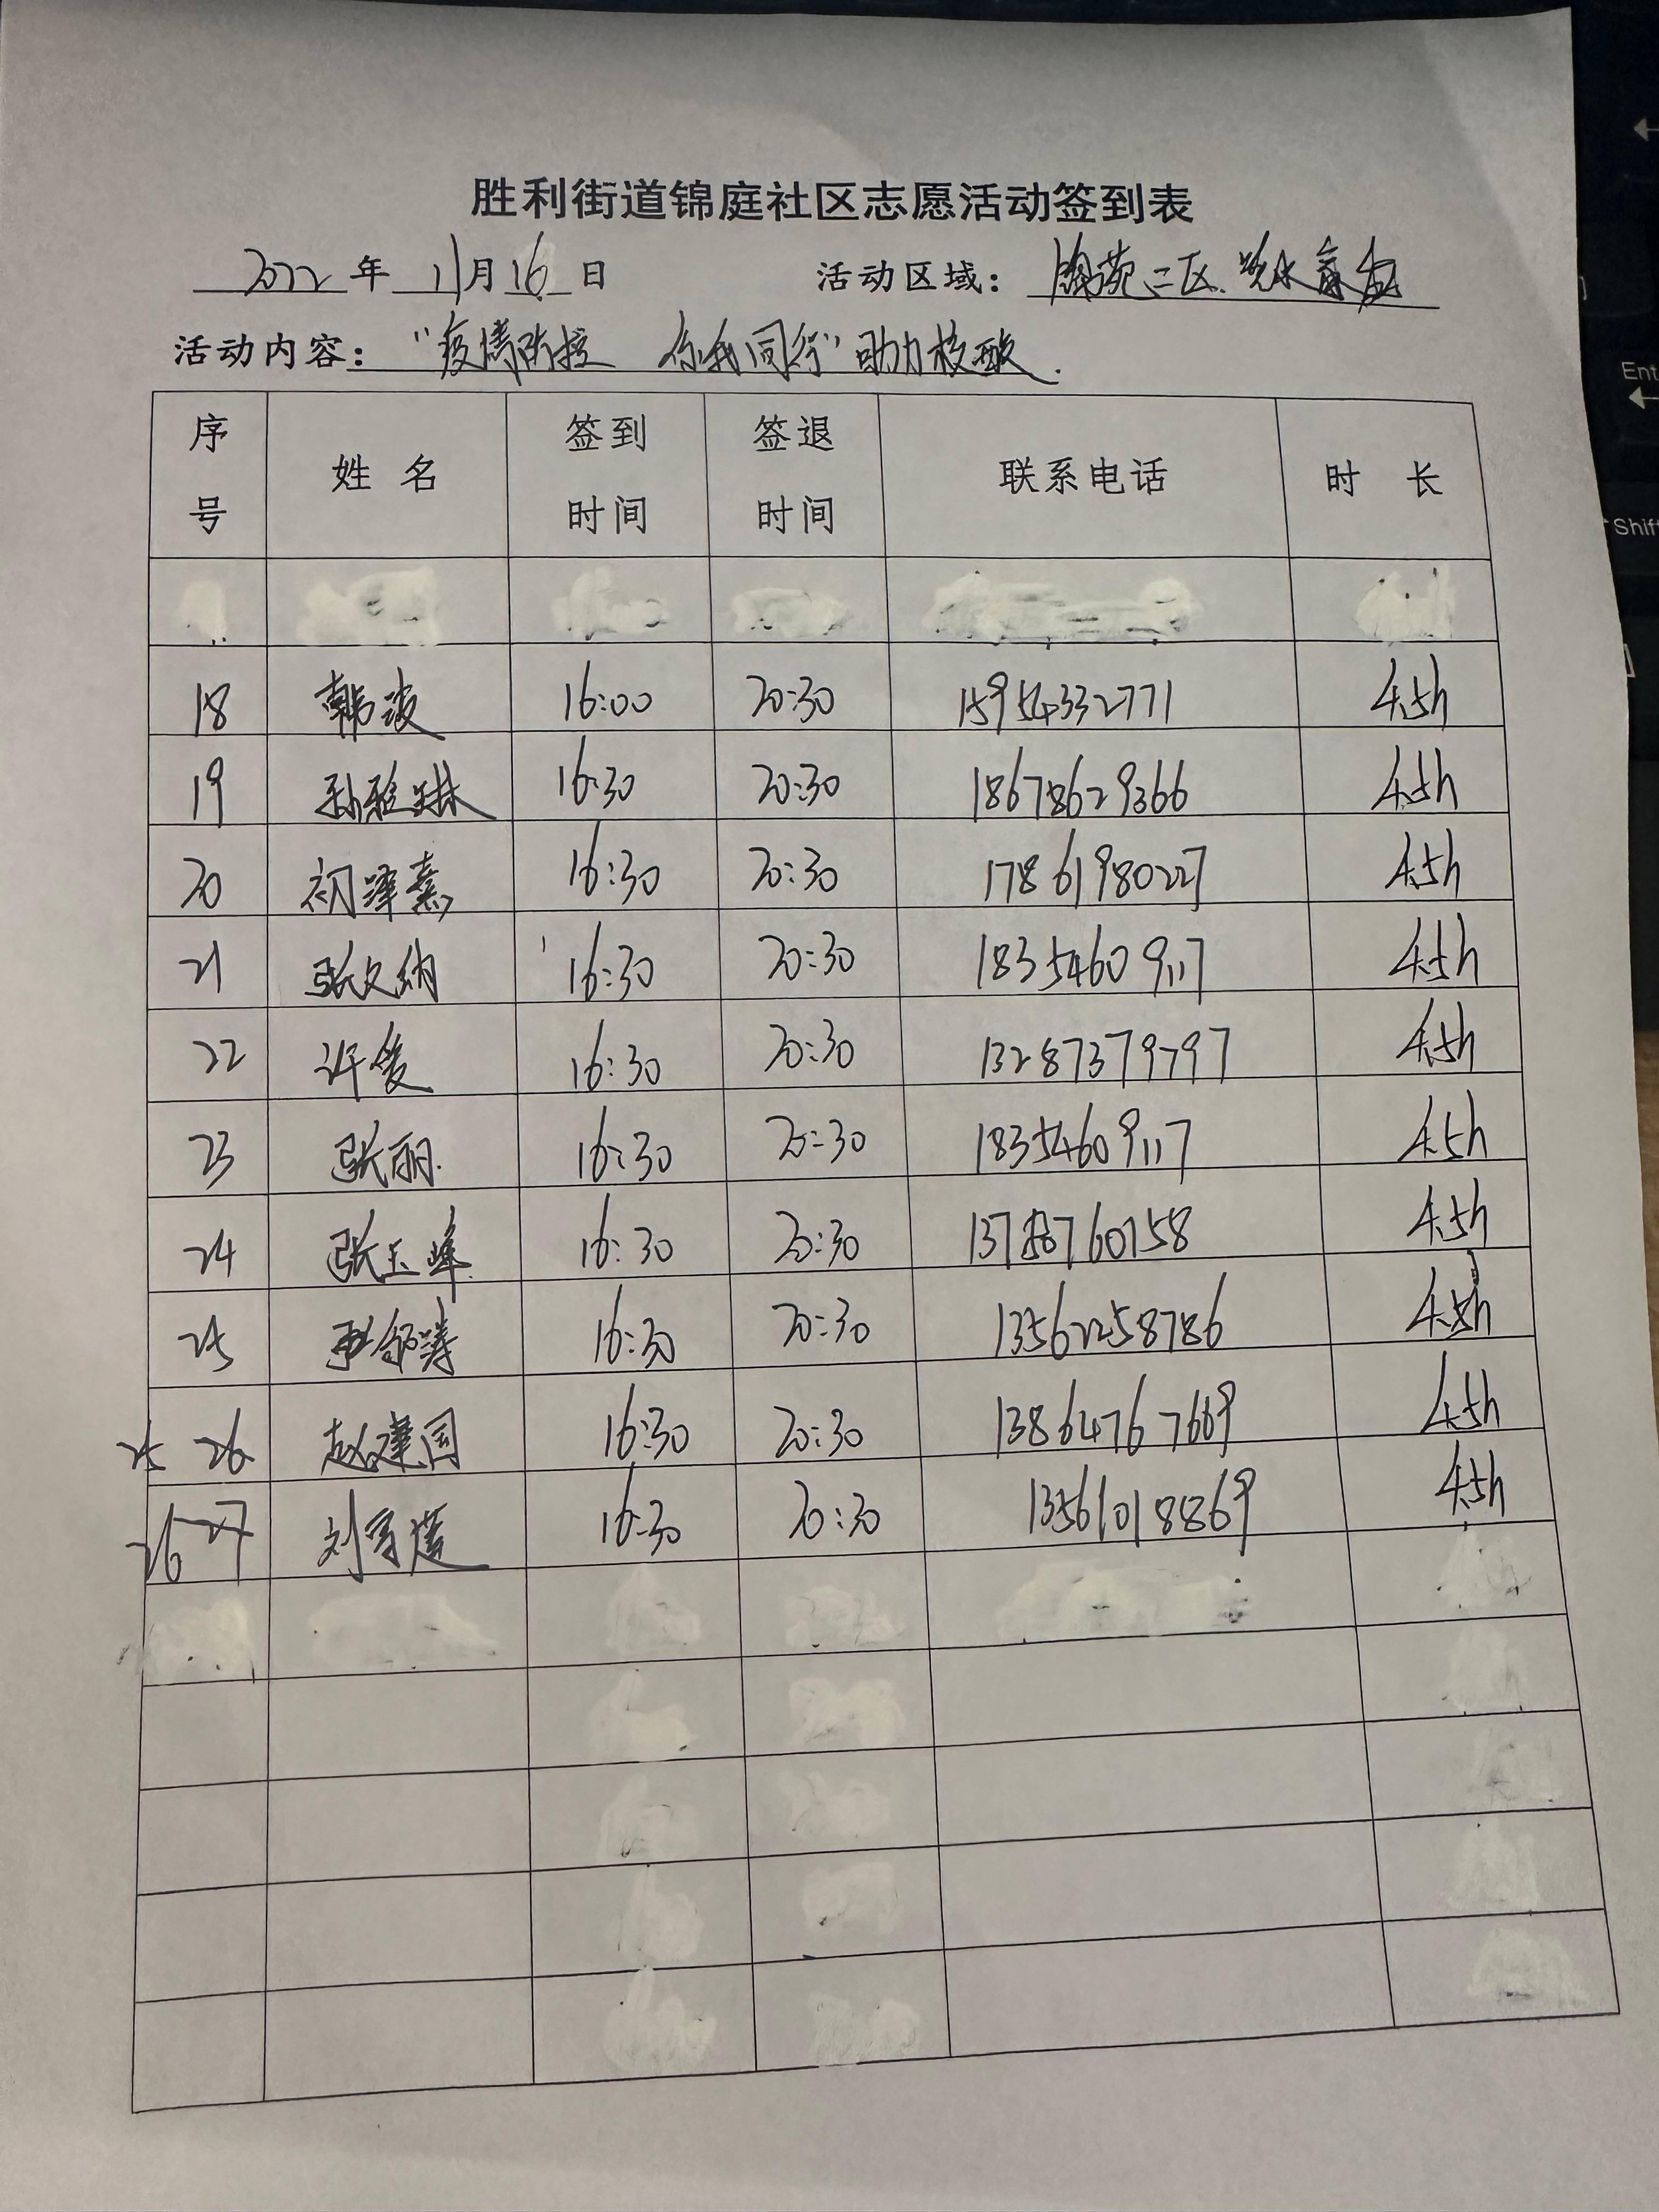 胜利街道锦庭社区志愿活动签到表
2022 年 11月 16 日 活动区域： 苑二区
活动内容： “疫情防控 你我同行”助力核酸.
序号 姓 名 签到时间 签退时间 联系电话 时 长
18 韩波 16:00 20:30 15954332771 4.5h
19 孙雅琳 16:30 20:30 18678629366 4.5h
20 初泽熹 16:30 20:30 17861980227 4.5h
21 张文纳 16:30 20:30 18354609117 4.5h
22 许俊 16:30 20:30 13287379797 4.5h
23 张丽 16:30 20:30 18354609117 4.5h
24 张玉峰 16:30 20:30 4.5h
25 16:30 20:30 13562258786 4.5h
25 26 赵建国 16:30 20:30 13864767669 4.5h
26 27 刘 16:30 20:30 13561018869 4.5h
Ent
Shift